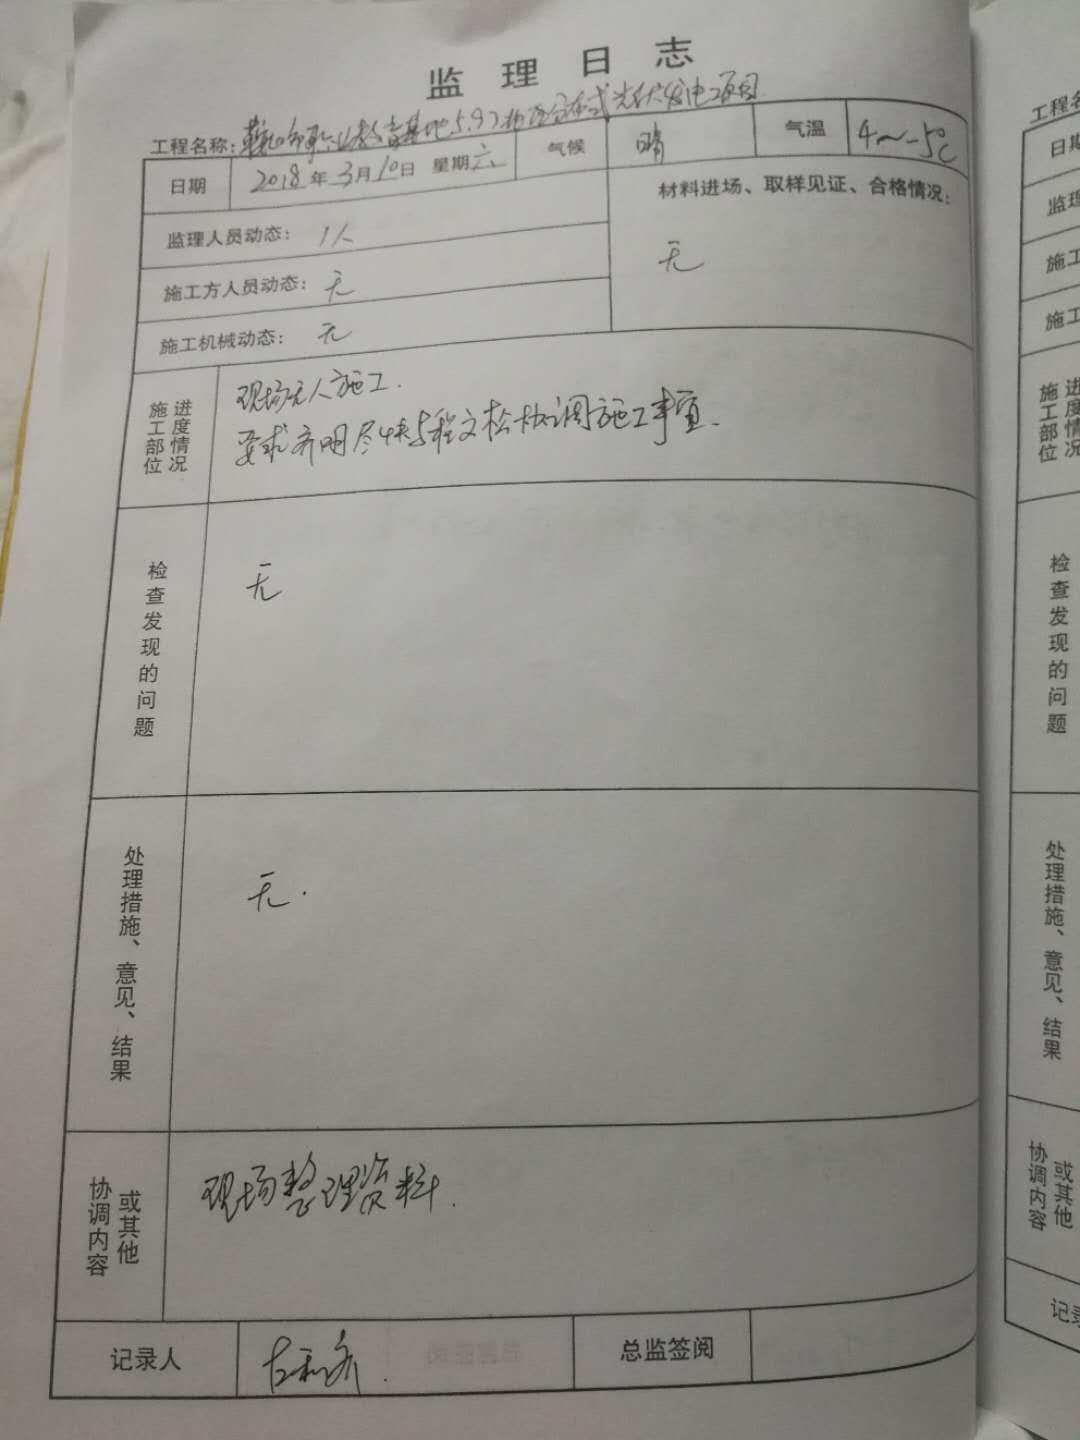 监理日志
工程名称: 鞍山市职业教育基地5.97 分布式光伏发电项目
日期 2018年3月10日 星期六 气候 晴 气温 4～-5℃
监理人员动态: 1人
材料进场、取样见证、合格情况:
无
施工方人员动态: 无
施工机械动态: 无
施工部位
进度情况
现场无人施工.
要求齐明尽快与程文松协调施工事宜.
检查发现的问题
无
处理措施、意见、结果
无.
协调内容
或其他
现场整理资料.
记录人
总监签阅
工程名
日期
监理
施工
施工
施工部位
进度情况
检查发现的问题
处理措施、意见、结果
协调内容
或其他
记录